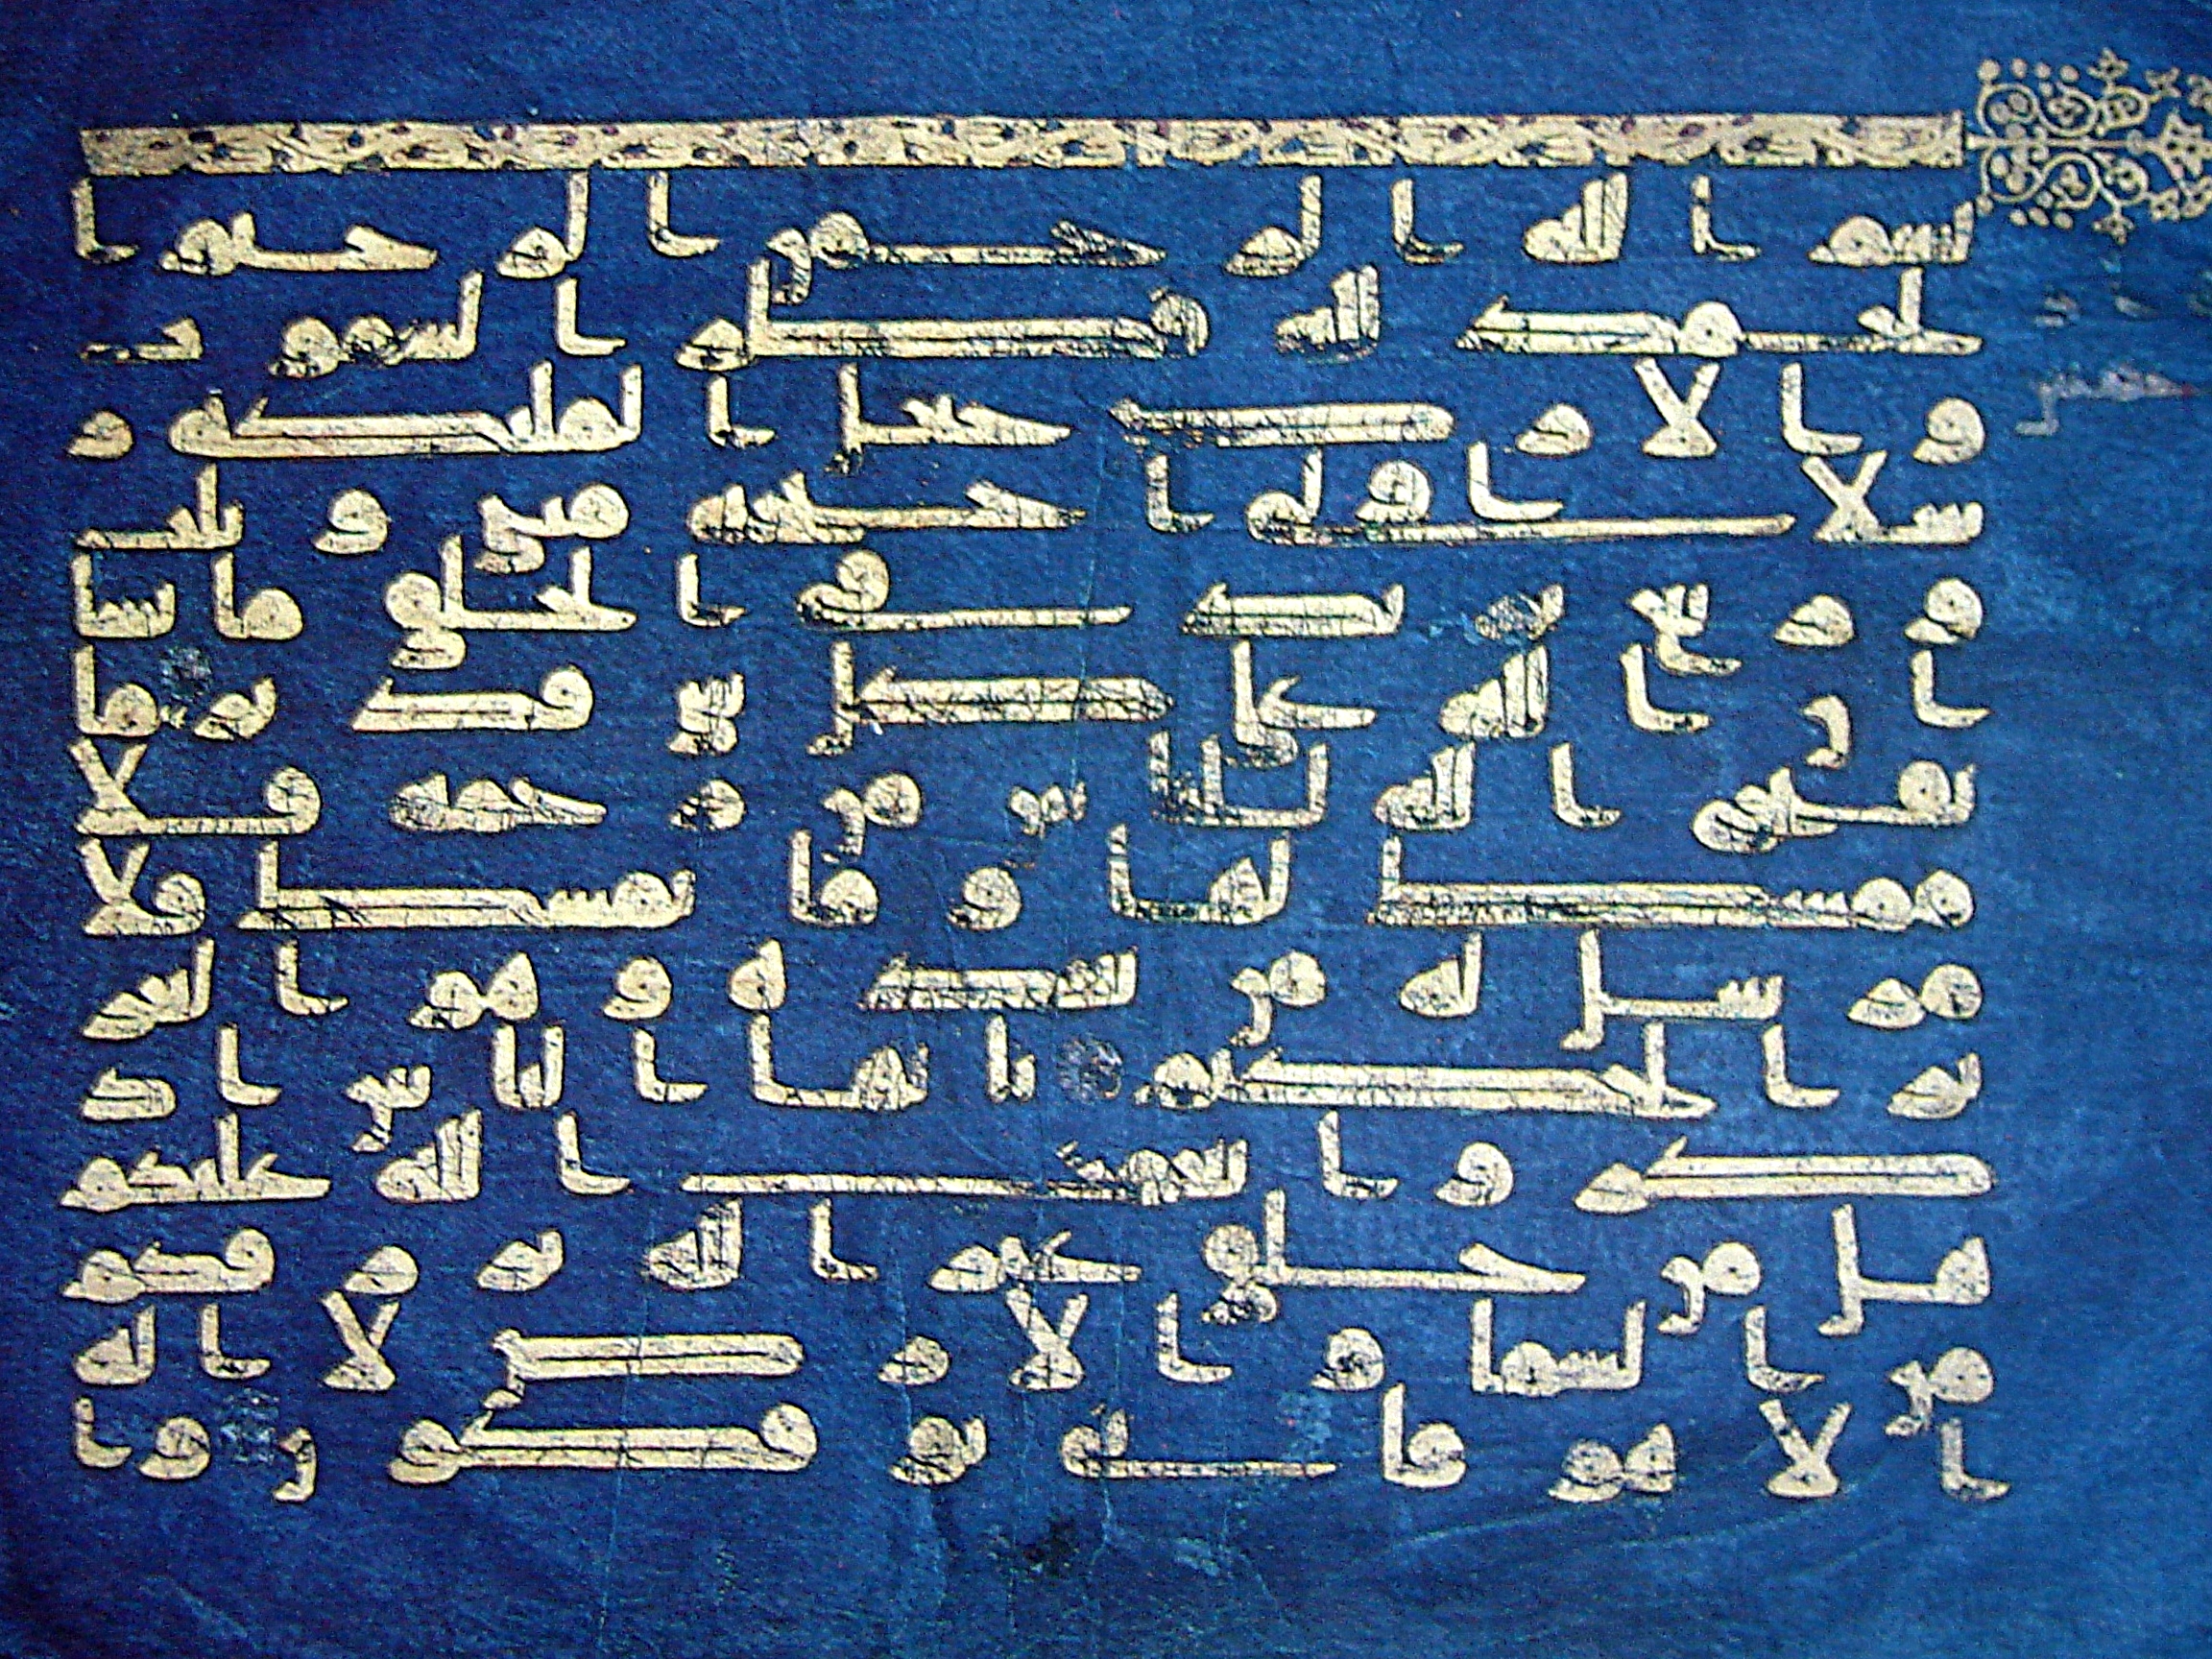 بسم الله الرحمن الرحيم ا
لحمد لله فطر السموت
والارض جعل الملئكة ر
سلا اولى اجنحة مثنى وثلث
وربع يزيد فى الخلق ما يشا
ان الله على كل شى قدير ما
يفتح الله للناس من رحمة فلا
ممسك لها وما يمسك فلا
مرسل له من بعده وهو العز
يز الحكيم يايها الناس اذ
كروا نعمت الله عليكم
هل من خلق غير الله يرزقكم
من السما والارض لا اله
الا هو فانى توفكون وا